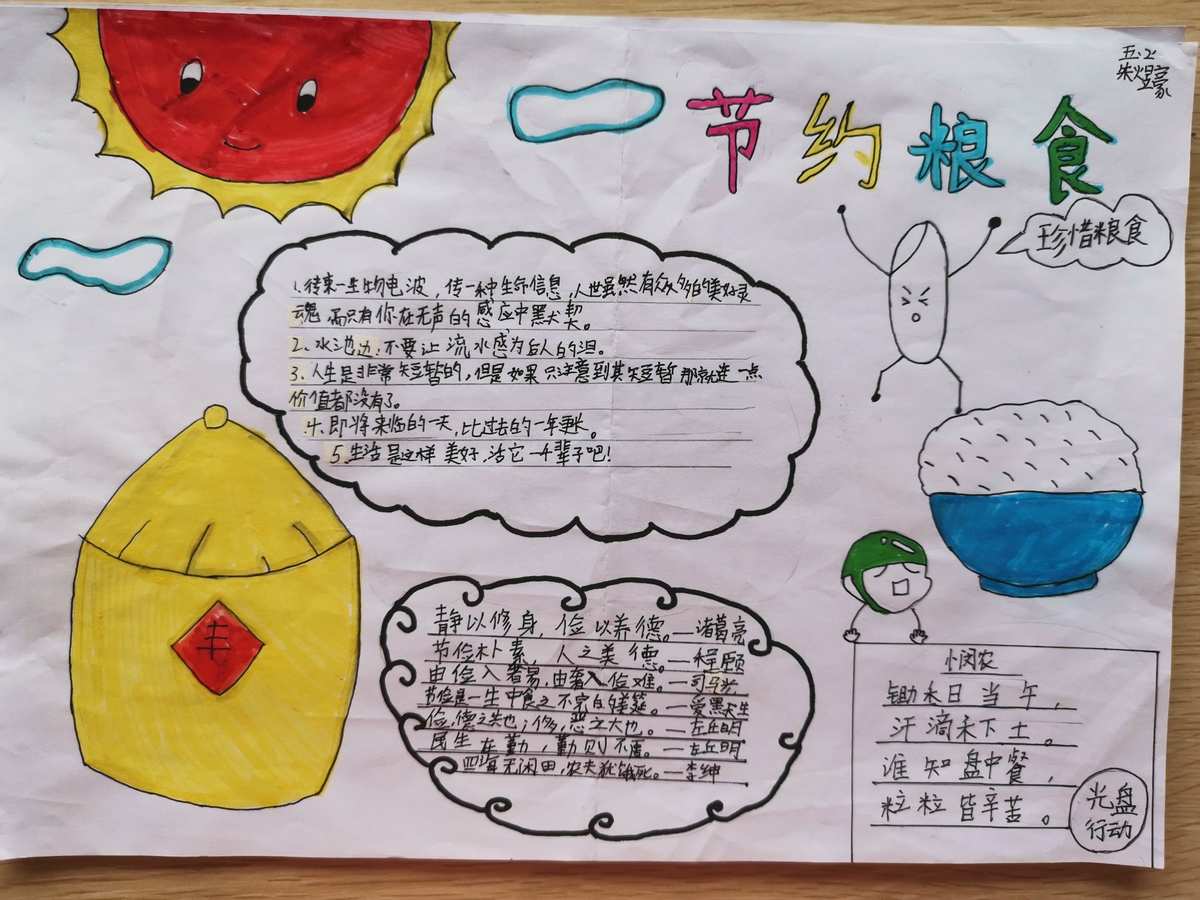 五.2
朱煜豪
节约粮食
珍惜粮食
1.待来一生物电波，传一种生命信息，人世虽然有众多的美好灵
魂，而只有你在无声的感应中默契。
2、水池边：不要让流水感为后人的泪。
3、人生是非常短暂的，但是如果只注意到其短暂那就连一点
价值都没有了。
4、即将来临的一天，比过去的一年更长。
5、生活是这样美好，活它一千辈子吧！
静以修身，俭以养德。—诸葛亮
节俭朴素，人之美德。—程颐
由俭入奢易，由奢入俭难。—司马光
节俭是一生中食之不完的筵。—爱默生
俭，德之共也；侈，恶之大也。—左丘明
民生在勤，勤则不匮。—左丘明
四海无闲田，农夫犹饿死。—李绅
悯农
锄禾日当午，
汗滴禾下土。
谁知盘中餐，
粒粒皆辛苦。
光盘
行动
丰